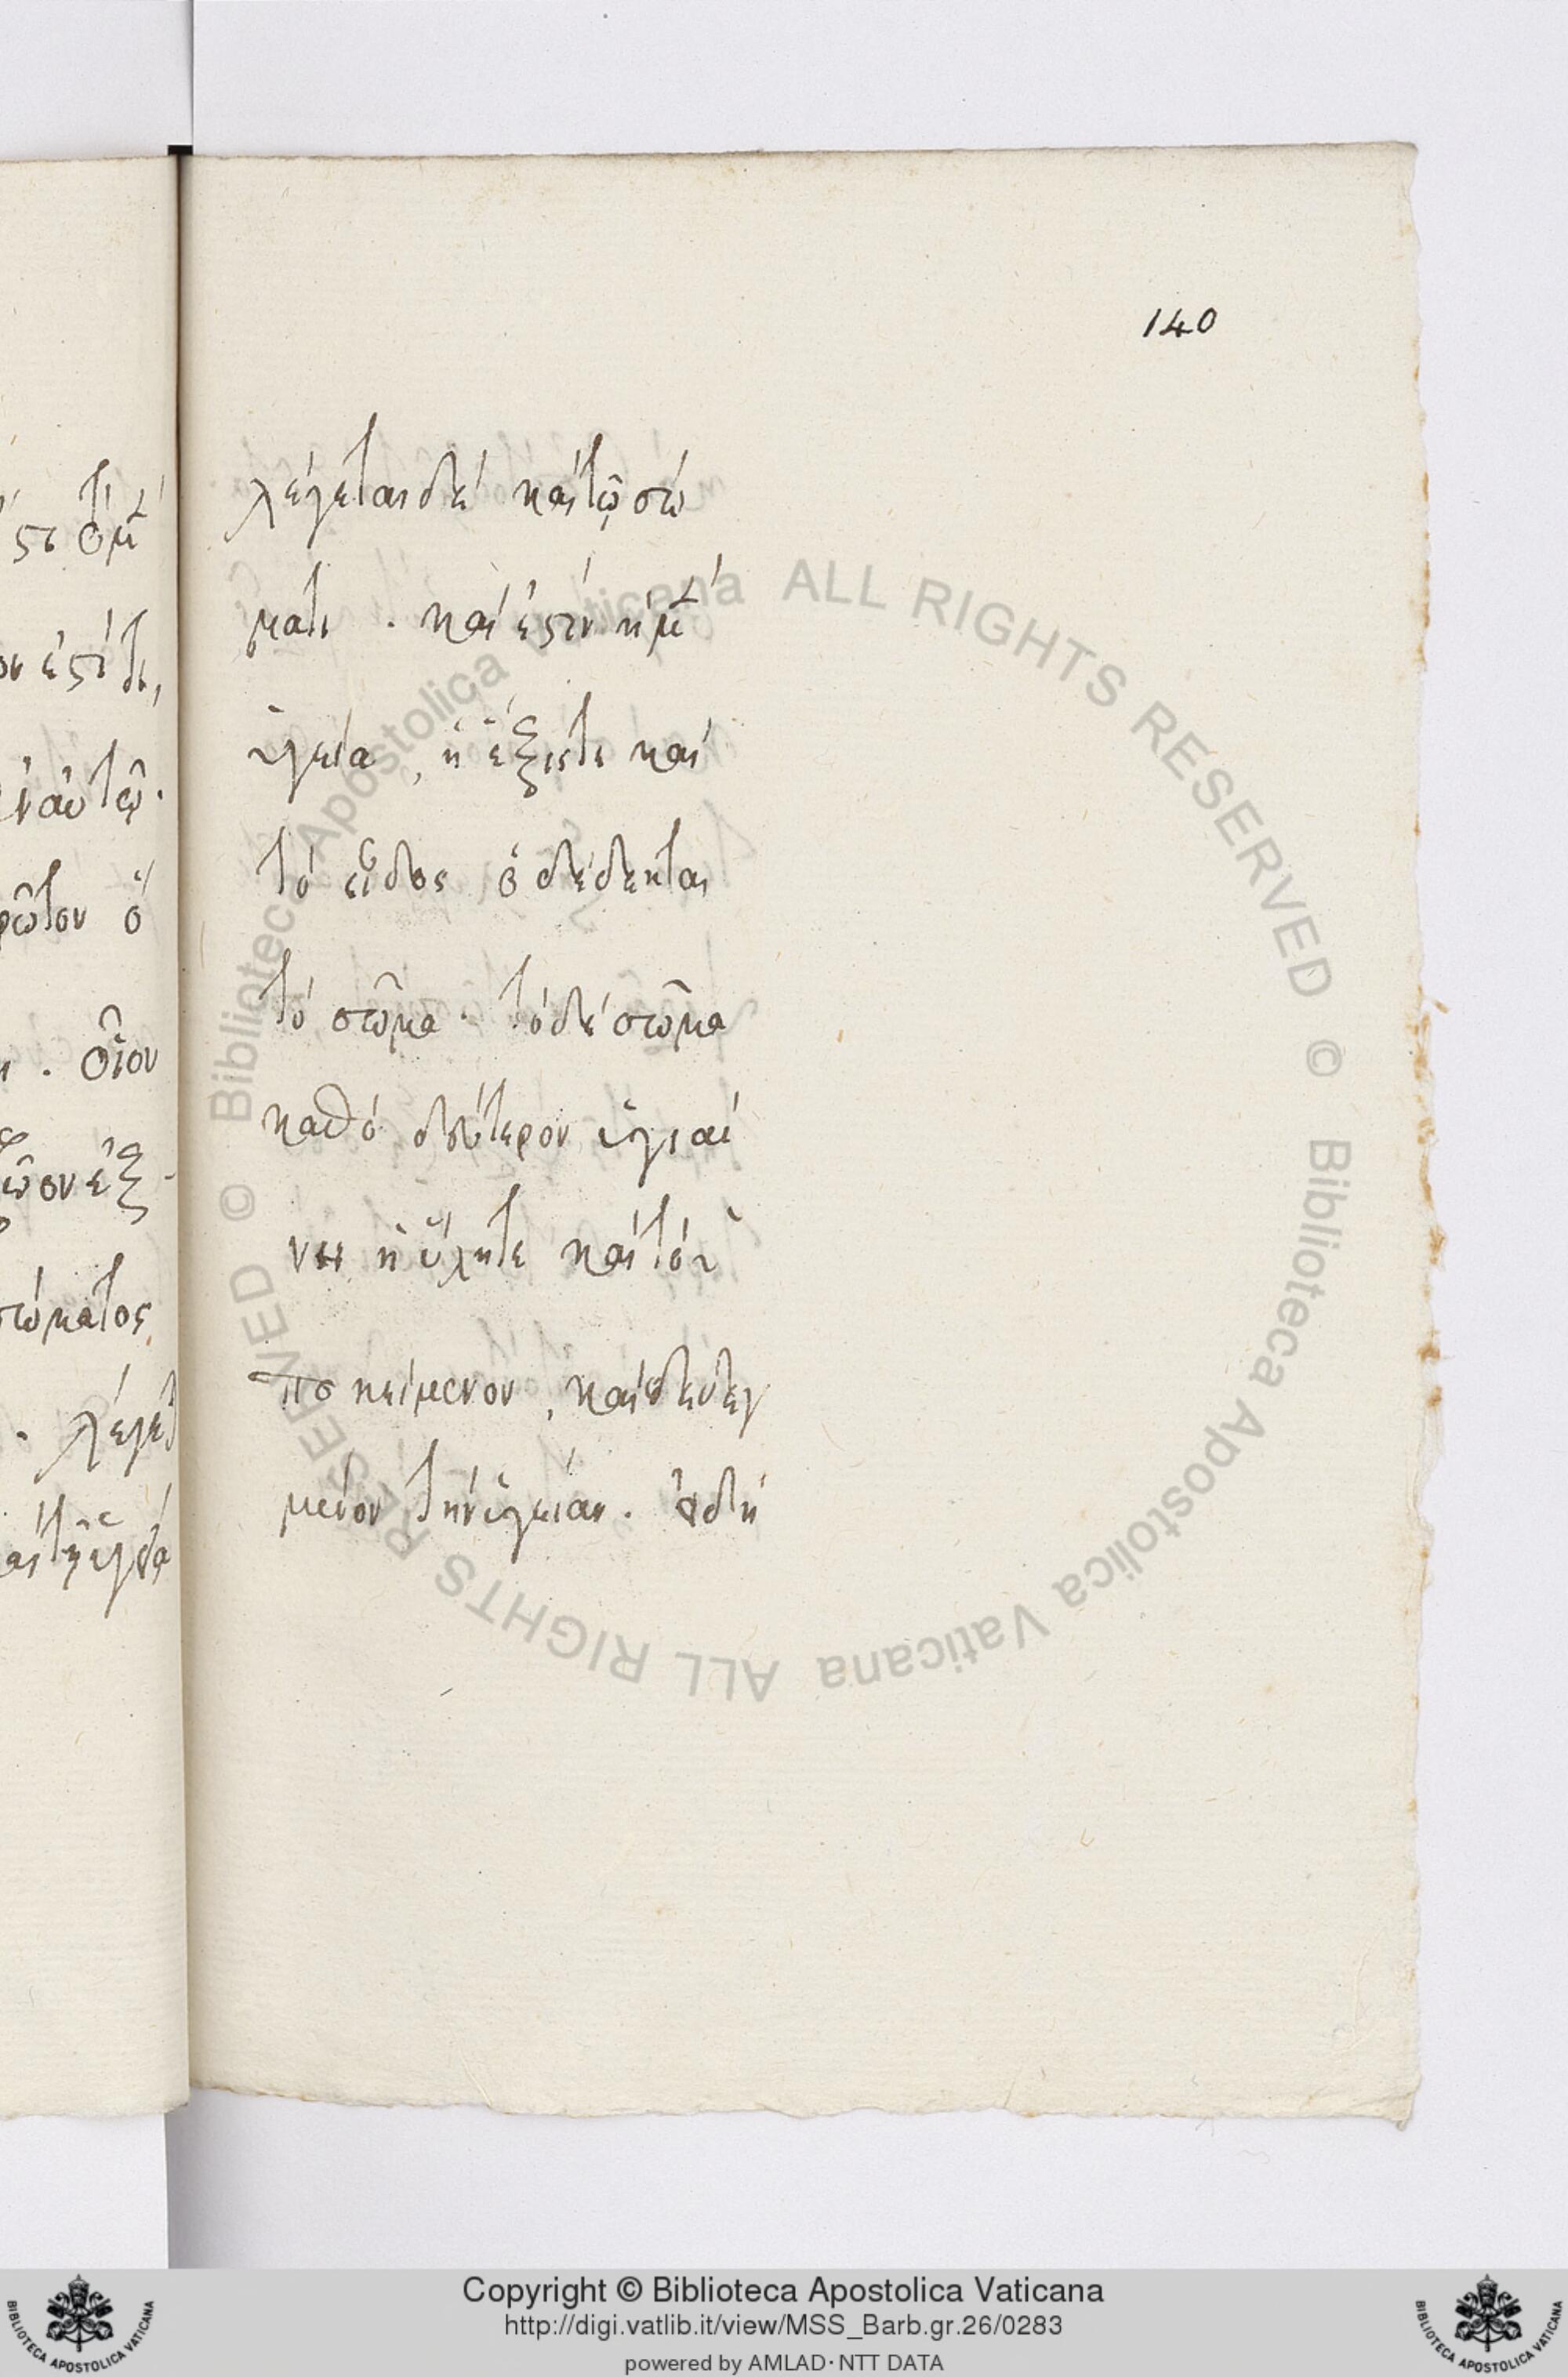 140
λέγεται δὲ καὶ τῷ σώ
ματι . καὶ ἔστιν ἡ μ(ὲν)
ὑγεία , ἡ ἕξις τε καὶ
τὸ εἶδος ὃ δέδεκται
τὸ σῶμα . τὸ δὲ σῶμα
καθὸ δεύτερον ὑγιαί
νει ἡ ὕλη τε καὶ τὸ ὑ
ποκείμενον , καὶ δεδεγ
μένον τὴν ὑγείαν . ὃ δὴ
Copyright © Biblioteca Apostolica Vaticana
http://digi.vatlib.it/view/MSS_Barb.gr.26/0283
powered by AMLAD · NTT DATA
Biblioteca Apostolica Vaticana ALL RIGHTS RESERVED ©
Biblioteca Apostolica Vaticana ALL RIGHTS RESERVED ©
BIBLIOTECA APOSTOLICA VATICANA
BIBLIOTECA APOSTOLICA VATICANA